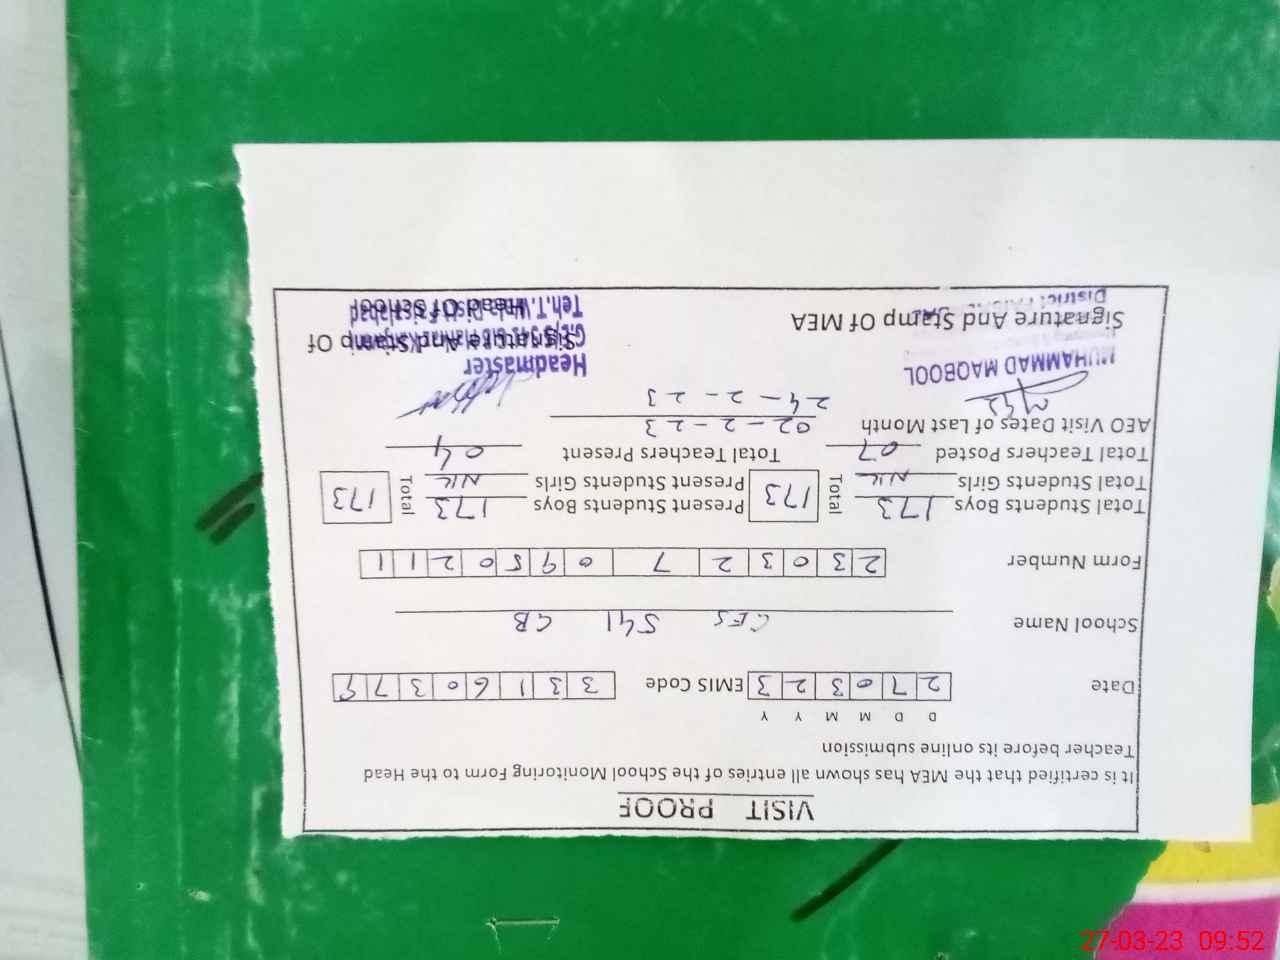 VISIT PROOF
It is certified that the MEA has shown all entries of the School Monitoring Form to the Head
Teacher before its online submission
D D M M Y Y
Date 2 7 0 3 2 3 EMIS Code 3 3 1 6 0 3 7
School Name GES 541 GB
Form Number 2 3 0 3 2 7 0 9 5 0 2 1 1
Total Students Boys 173 Total 173 Present Students Boys 173 Total 173
Total Students Girls Nil Present Students Girls Nil
Total Teachers Posted 07 Total Teachers Present 04
AEO Visit Dates of Last Month 02-2-23
24-2-23
MUHAMMAD MAQBOOL Headmaster
Signature And Stamp Of MEA Signature And Stamp Of
Head Of School
District Teh.T.Wala Disst Faisalabad
27-03-23 09:52